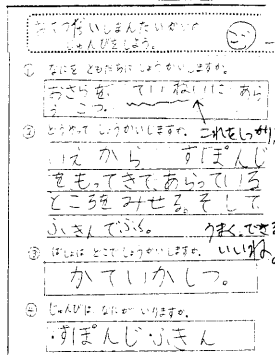 みつだいじまんたいかいの
じゅんびをしよう。
こつ
① なにをともだちにしょうかいしますか。
おさらを ていねいに あら
う こつ。
② どうやってしょうかいしますか。 これをしっかり
いえから すぽんじ
をもってきて、あらっている
ところをみせる。そして
ふきんでふく。 うまくできる
③ ばしょは どこでしょうかいしますか。 いいね。
かていかしつ。
④ じゅんびは、なにが いりますか。
・すぽんじ・ふきん